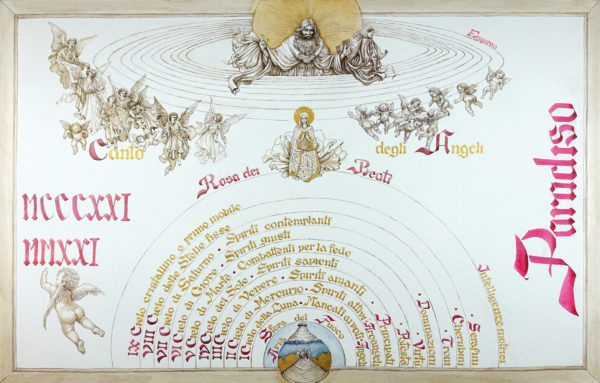 Empireo
Canto degli Angeli
Rosa dei Beati
Paradiso
MCCCXXI
MMXXI
IX Cielo cristallino o primo mobile
VIII Cielo delle Stelle fisse
VII Cielo di Saturno · Spiriti contemplanti
VI Cielo di Giove · Spiriti giusti
V Cielo di Marte · Combattenti per la fede
IV Cielo del Sole · Spiriti sapienti
III Cielo di Venere · Spiriti amanti
II Cielo di Mercurio · Spiriti attivi
I Cielo della Luna · Mancati voti
Sfera del Fuoco
Intelligenze motrici
· Serafini
· Cherubini
· Troni
· Dominazioni
· Virtù
· Principati
· Arcangeli
· Angeli